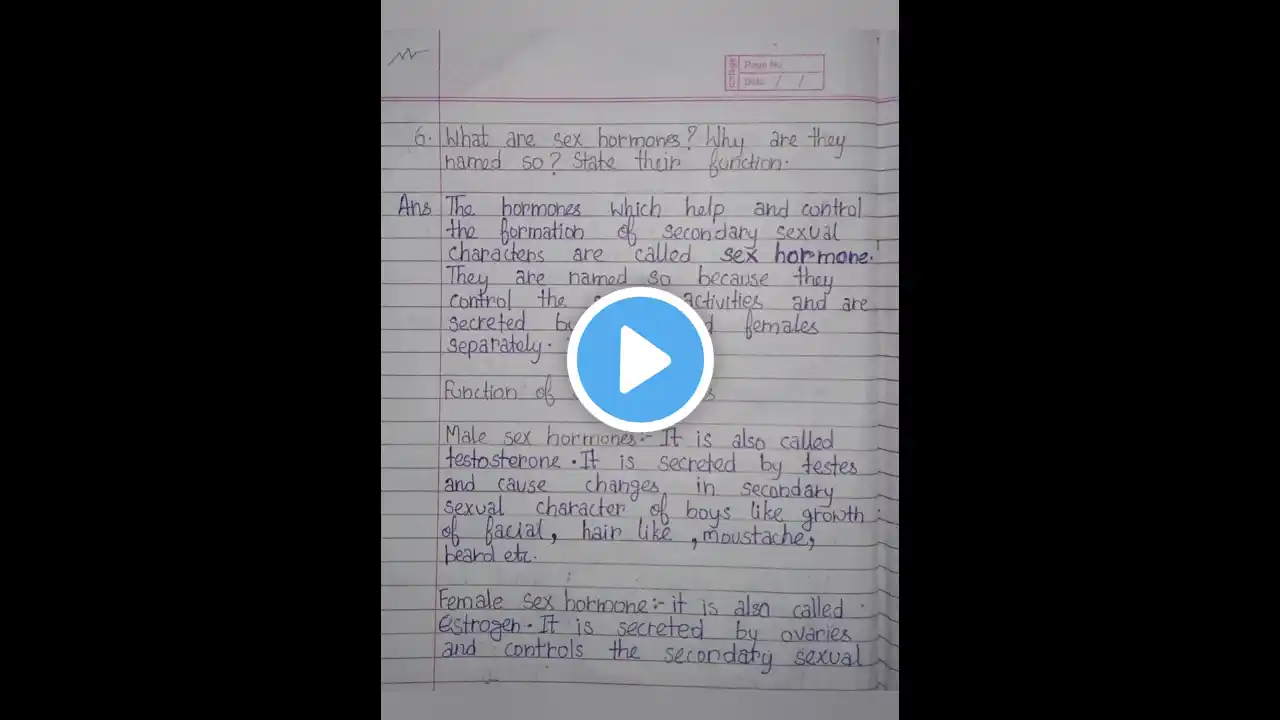 Page No
Date / /
6. What are sex hormones? Why are they
named so? State their function.
Ans The hormones which help and control
the formation of secondary sexual
characters are called sex hormone.
They are named so because they
control the activities and are
secreted by females
separately.
Function of
Male sex hormones:- It is also called
testosterone. It is secreted by testes
and cause changes in secondary
sexual character of boys like growth
of facial, hair like , moustache,
beard etc.
Female sex hormone:- it is also called
estrogen. It is secreted by ovaries
and controls the secondary sexual